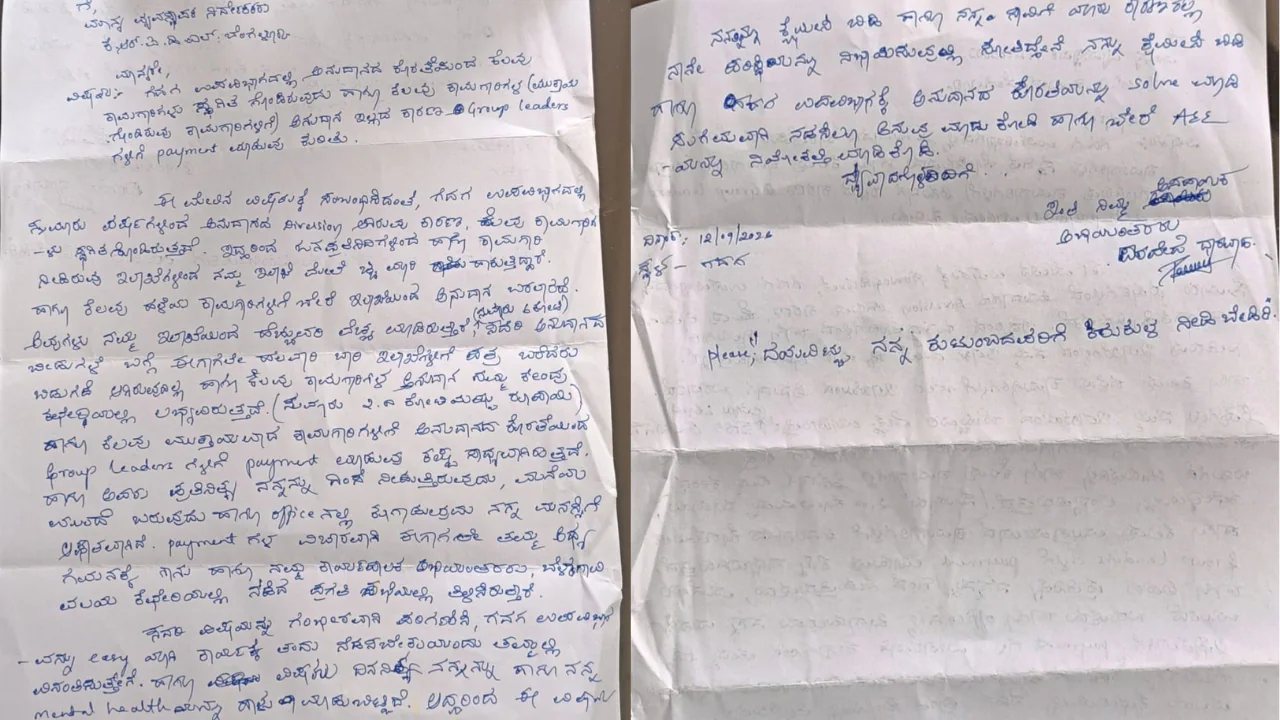 ಗೆ,
ಮಾನ್ಯ ವ್ಯವಸ್ಥಾಪಕ ನಿರ್ದೇಶಕರು
ಕೆ.ಆರ್.ಐ.ಡಿ.ಎಲ್. ಬೆಂಗಳೂರು
ಮಾನ್ಯರೇ,
ವಿಷಯ:- ಗದಗ ಉಪವಿಭಾಗದಲ್ಲಿ ಅನುದಾನದ ಕೊರತೆಯಿಂದ ಕೆಲವು
ಕಾಮಗಾರಿಗಳು ಸ್ಥಗಿತ ಗೊಂಡಿರುವುದು ಹಾಗೂ ಕೆಲವು ಕಾಮಗಾರಿಗಳ (ಮುಕ್ತಾಯ
ಗೊಂಡಿರುವ ಕಾಮಗಾರಿಗಳಿಗೆ) ಅನುದಾನ ಇಲ್ಲದ ಕಾರಣ Group Leaders
ಗಳಿಗೆ payment ಮಾಡುವ ಕುರಿತು.
ಈ ಮೇಲಿನ ವಿಷಯಕ್ಕೆ ಸಂಬಂಧಿಸಿದಂತೆ, ಗದಗ ಉಪವಿಭಾಗದಲ್ಲಿ
ಸುಮಾರು ವರ್ಷಗಳಿಂದ ಅನುದಾನದ Diversion ಆಗಿರುವ ಕಾರಣ, ಕೆಲವು ಕಾಮಗಾರಿಗ
-ಳು ಸ್ಥಗಿತಗೊಂಡಿರುತ್ತವೆ. ಇದ್ದರಿಂದ ಜನಪ್ರತಿನಿಧಿಗಳಿಂದ ಹಾಗೂ ಕಾಮಗಾರಿ
ನೀಡಿರುವ ಇಲಾಖೆಗಳಿಂದ ನಮ್ಮ ಇಲಾಖೆ ಮೇಲೆ ಛೀ ಮಾರಿ ಹಾಕುತ್ತಿದ್ದಾರೆ.
ಹಾಗೂ ಕೆಲವು ಹಳೆಯ ಕಾಮಗಾರಿಗಳಿಗೆ ಬೇರೆ ಇಲಾಖೆಯಿಂದ ಅನುದಾನ ಬರಬೇಕಿದೆ.
ಅವುಗಳು ನಮ್ಮ ಇಲಾಖೆಯಿಂದ ಹೆಚ್ಚುವರಿ ವೆಚ್ಚ ಮಾಡಿರುತ್ತಾರೆ (ಸುಮಾರು 6 ಕೋಟಿ) ಸದರಿ ಅನುದಾನದ
ಬಿಡುಗಡೆ ಬಗ್ಗೆ ಈಗಾಗಲೇ ಹಲವಾರು ಬಾರಿ ಇಲಾಖೆಗಳಿಗೆ ಪತ್ರ ಬರೆದರು
ಬಿಡುಗಡೆ ಆಗಿರುವುದಿಲ್ಲ ಹಾಗೂ ಕೆಲವು ಕಾಮಗಾರಿಗಳ ಅನುದಾನ ನಮ್ಮ ಕೇಂದ್ರ
ಕಛೇರಿಯಲ್ಲಿ ಲಭ್ಯವಿರುತ್ತದೆ. (ಸುಮಾರು 2.೧ ಕೋಟಿಯಷ್ಟು ರೂಪಾಯಿ)
ಹಾಗೂ ಕೆಲವು ಮುಕ್ತಾಯವಾದ ಕಾಮಗಾರಿಗಳಿಗೆ ಅನುದಾನದ ಕೊರತೆಯಿಂದ
Group Leaders ಗಳಿಗೆ payment ಮಾಡುವುದು ಕಷ್ಟ ಸಾಧ್ಯವಾಗಿರುತ್ತದೆ.
ಹಾಗೂ ಅವರು ಪ್ರತಿನಿತ್ಯ ನನ್ನನ್ನು ಹಿಂಸೆ ನೀಡುತ್ತಿರುವುದು, ಮನೆಯ
ಮುಂದೆ ಬರುವುದು ಹಾಗೂ office ನಲ್ಲಿ ಕೂಗಾಡುವುದು ನನ್ನ ಮನಸ್ಸಿಗೆ
ಆಘಾತವಾಗಿದೆ. payment ಗಳ ವಿಚಾರವಾಗಿ ಈಗಾಗಲೇ ತಮ್ಮ
ಗಮನಕ್ಕೆ ನಾನು ಹಾಗೂ ನಮ್ಮ ಕಾರ್ಯಪಾಲಕ ಅಭಿಯಂತರರು, ಬೆಳಗಾವಿ
ವಲಯ ಕಛೇರಿಯಲ್ಲಿ ನಡೆದ ಪ್ರಗತಿ ಸಭೆಯಲ್ಲಿ ತಿಳಿಸಿರುತ್ತಾರೆ.
ಸದರಿ ವಿಷಯನ್ನು ಗಂಭೀರವಾಗಿ ಪರಿಗಣಿಸಿ, ಗದಗ ಉಪವಿಭಾಗ
-ವನ್ನು easy ಯಾಗಿ ಕಾರ್ಯಕ್ಕೆ ತಂದು ನಡೆಸಬೇಕೆಂದು ತಮ್ಮಲ್ಲಿ
ವಿನಂತಿಸುತ್ತೇನೆ. ಹಾಗೂ ವಿಷಯ ದಿನನಿತ್ಯ ನನ್ನನ್ನು ಹಾಗೂ ನನ್ನ
mental health ಯನ್ನು ಹಾಳು ಮಾಡುಬಿಟ್ಟಿದೆ. ಆದ್ದರಿಂದ ಈ ವಿಷಯ
ನನ್ನನ್ನು ಕ್ಷಮಿಸಿ ಬಿಡಿ ಹಾಗೂ ನನ್ನಾ ಸಾವಿಗೆ ಯಾರು ಕಾರಣರಲ್ಲ
ನಾನೇ ಪರಿಸ್ಥಿತಿಯನ್ನು ನಿಭಾಯಿಸುವುದರಲ್ಲಿ ಸೋತಿದ್ದೇನೆ ನನ್ನ ಕ್ಷಮಿಸಿ ಬಿಡಿ
ಹಾಗೂ ಉಪವಿಭಾಗಕ್ಕೆ ಅನುದಾನದ ಕೊರತೆಯನ್ನು solve ಮಾಡಿ
ಸುಗಮವಾಗಿ ನಡೆಸಲು ಅನುವು ಮಾಡಿ ಕೊಡಿ ಹಾಗೂ ಬೇರೆ AEE
-ಯನ್ನು ನಿಯೋಜನೆ ಮಾಡಿಕೊಡಿ.
ಧನ್ಯವಾದಗಳೊಂದಿಗೆ..
ಇಂತಿ ನಿಮ್ಮ
ಅಭಿಯಂತರರು
ದಿನಾಂಕ: 12/09/2026
ಸ್ಥಳ - ಗದಗ
please!! ದಯವಿಟ್ಟು ನನ್ನ ಕುಟುಂಬದವರಿಗೆ ಕಿರುಕುಳ ನೀಡಬೇಡಿರಿ.